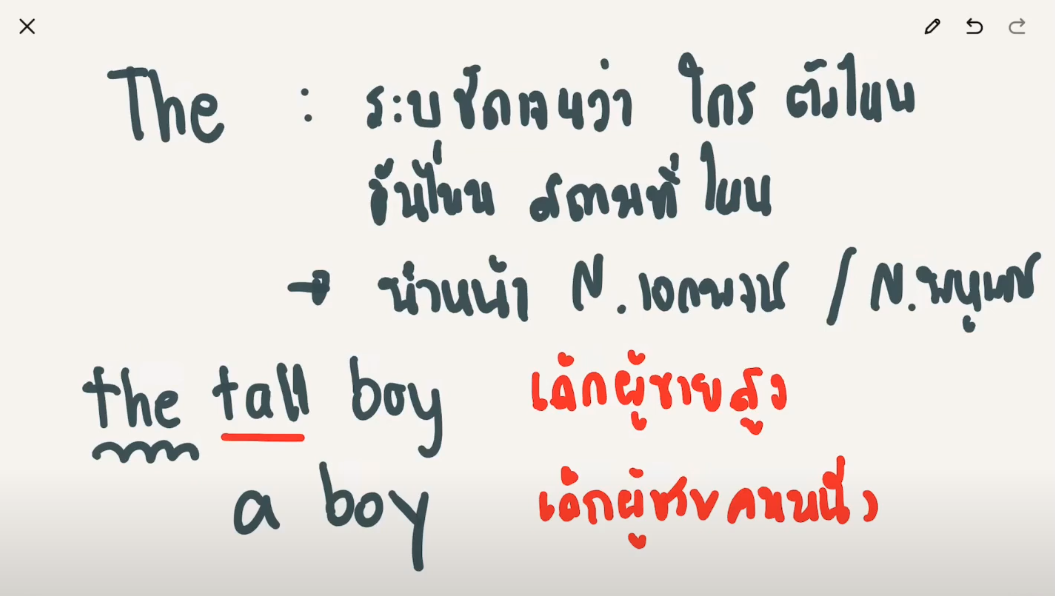 The : ระบุชัดเจนว่า ใคร ตัวไหน
อันไหน สถานที่ไหน
→ นำหน้า N.เอกพจน์ / N.พหูพจน์
the tall boy เด็กผู้ชายสูง
a boy เด็กผู้ชายคนหนึ่ง